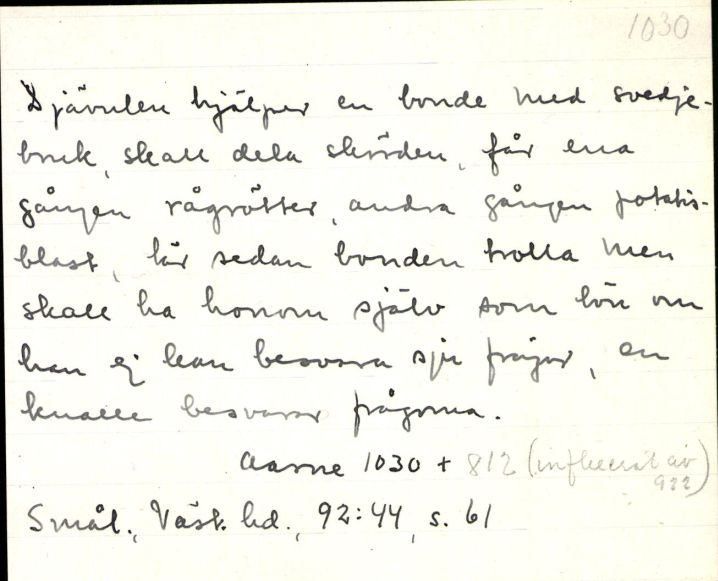 1030
Djävulen hjälper en bonde med svedje-
bruk, skall dela skörden, får ena
gången rågrötter, andra gången potatis-
blast, lär sedan bonden trolla men
skall ha honom själv som lön om
han ej kan besvara sju frågor, en
knalle besvarar frågorna.
Aarne 1030 + 812 (influerat av
922)
Smål., Väst. hd., 92:44, s. 61